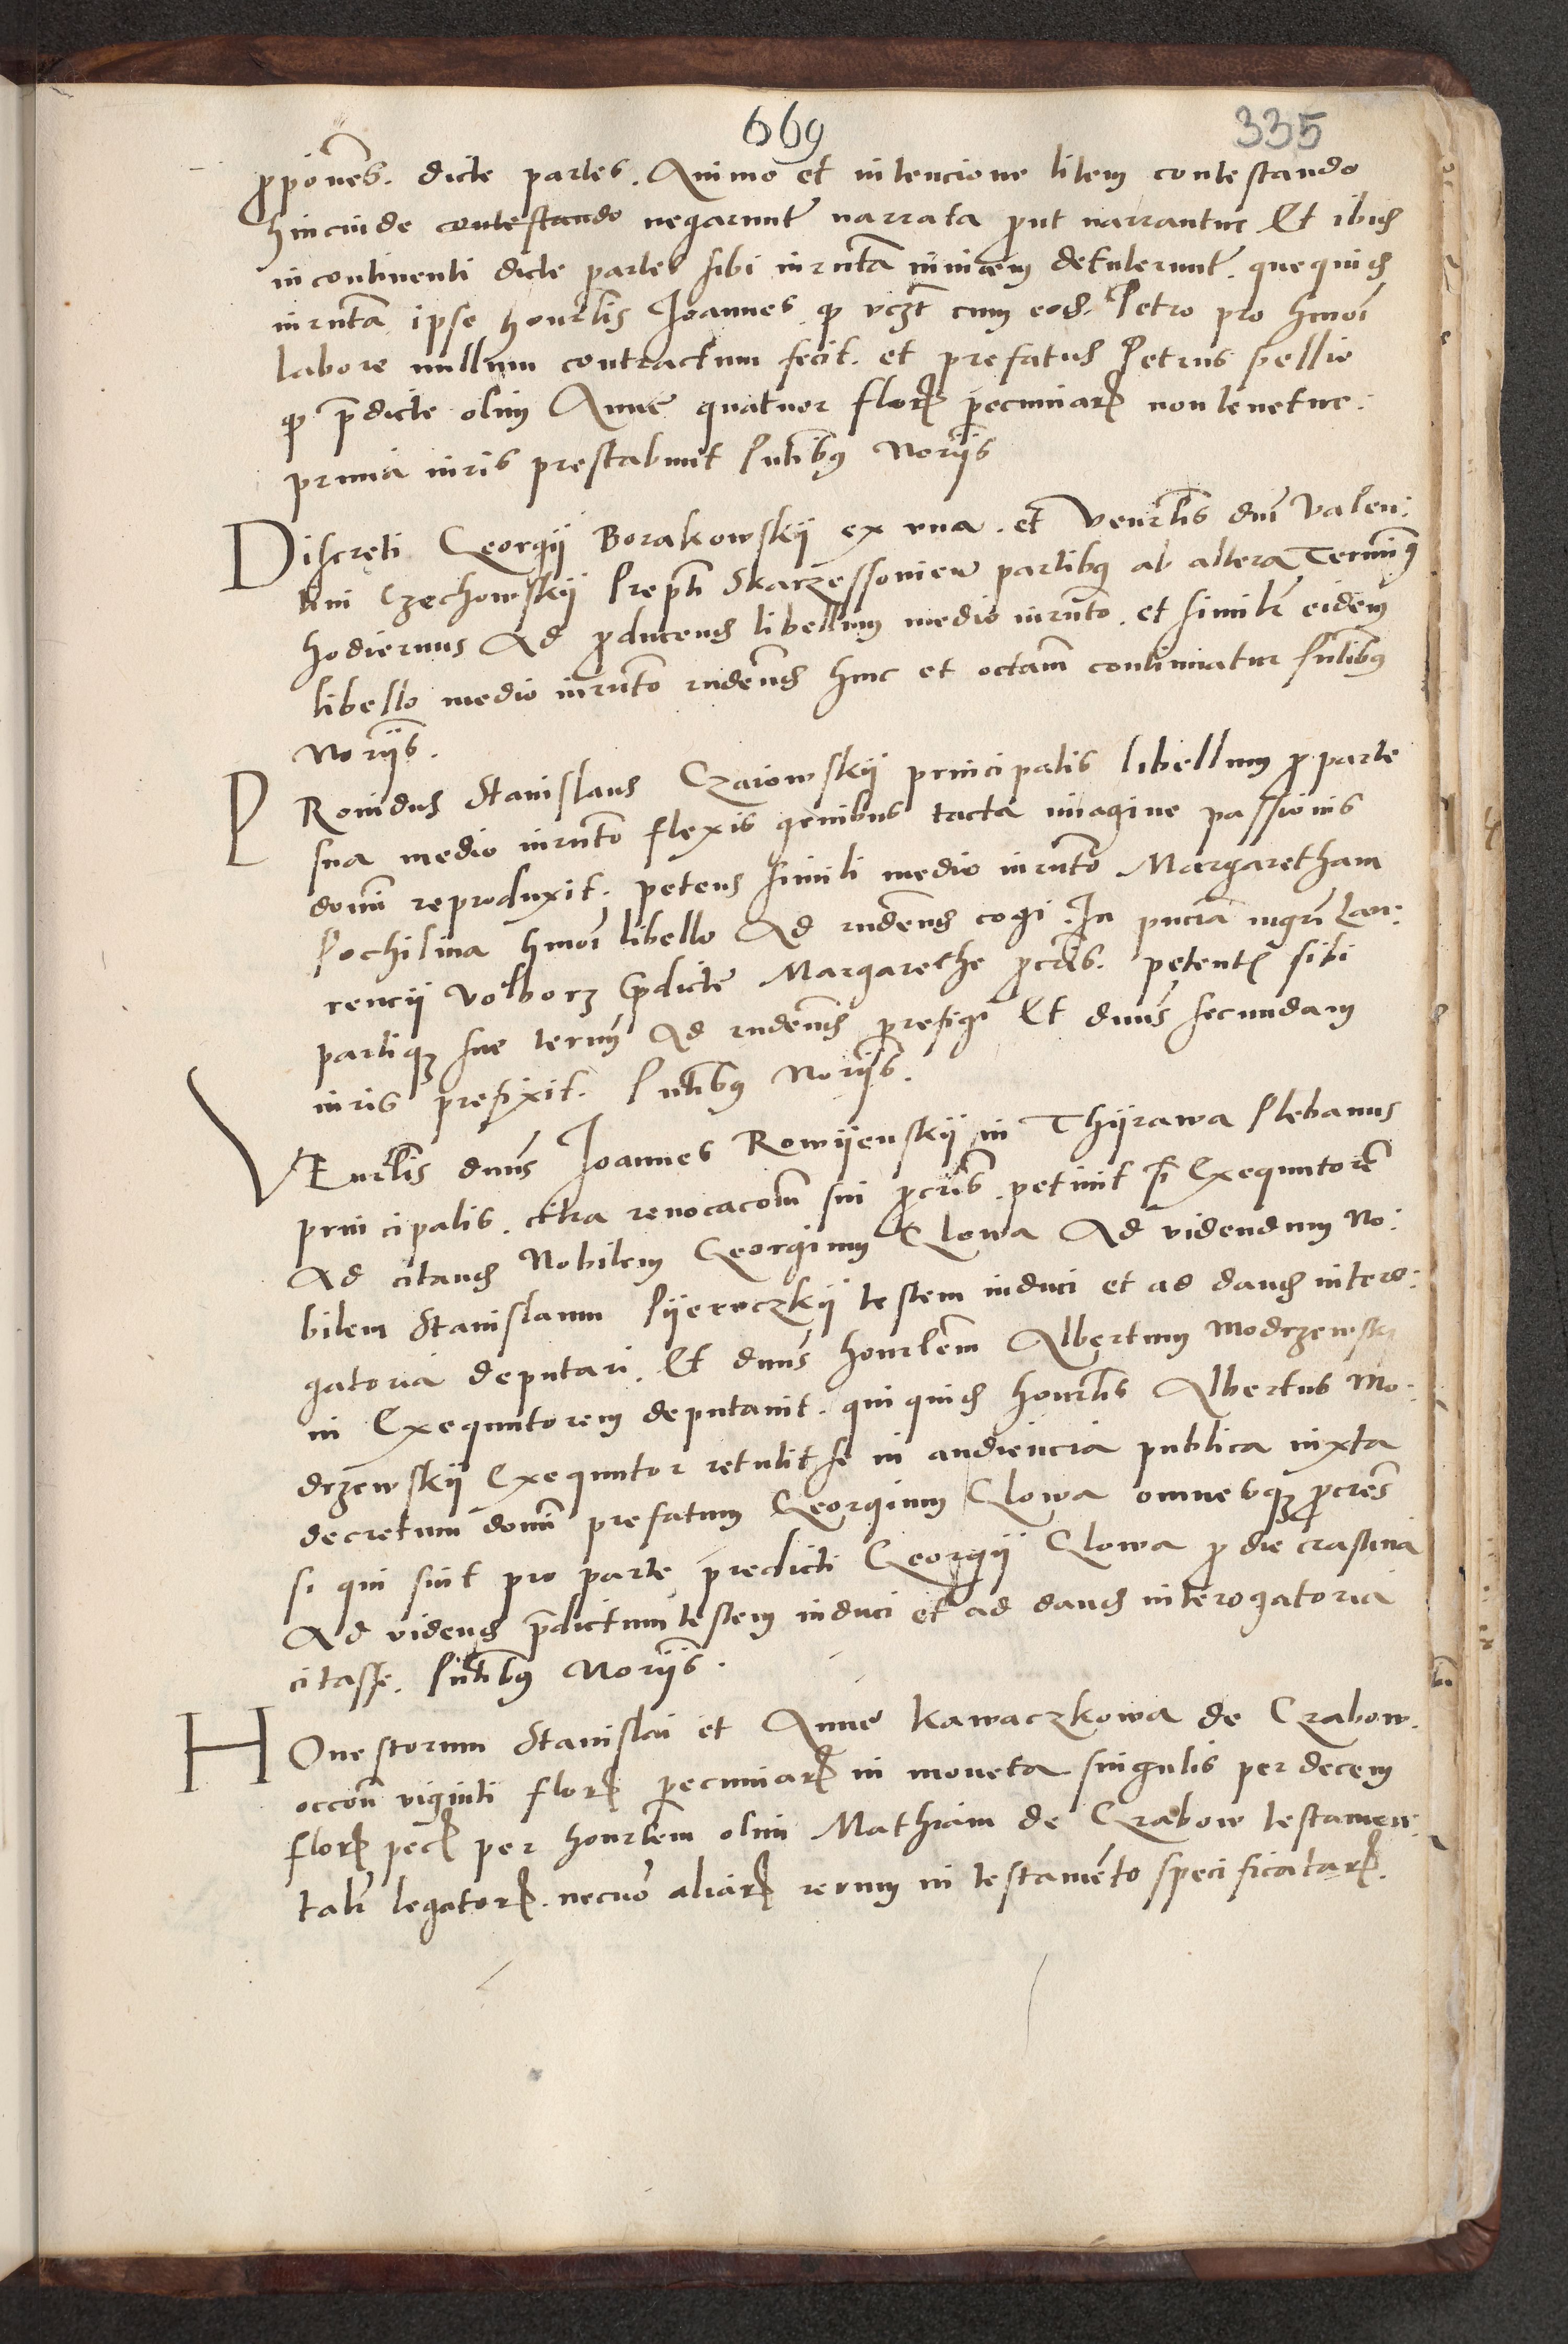 669 335
ꝓpōnēs. dicte partes. Animo et intencione litem contestando
hincinde contestando negarunt narrata ꝓut narrantur Et ibid
in continenti dicte partes sibi iurnta inuicem detulerunt. quequid
iurnta ipse honrlis Joannes ꝙ vꝫt cum eod. Petro pro hmoi
labore nullum contractum fecit. et prefatus Petrus pellio
ꝙ p̄dicte olim Anne quatuor flor pecuniar non tenetur.
prima iuris prestabunt Pntibus Norijs
Discreti Georgij Borakowskij ex vna. et Venrlis dni Valen:
tini Czechowskij Prepti Skarzessouien partibus ab altera Terminus
hodiernus Ad ꝓducend libellum medio iurnto. et similr eidem
libello medio iurnto rndend hinc et octam continuatur Pntibus
Norijs.
PRouidus Stanislaus Czaiowskij principalis libellum ꝓ parte
sua medio iurnto flexis genibus tacta imagine passionis
domi reproduxit. petens simili medio iurnto Margaretham
Pochilina hmoi libello Ad rndend cogi. In pncia mgri Lau:
rencij Volborz p̄dicte Margarethe ꝓcris. petent sibi
partiqꝫ sue termi Ad rndend prefigi Et dnus secundam
iuris prefixit. Pntibus Norijs.
VEnrlis dnus Joannes Rowijenskij in Thijrawa Plebanus
principalis. citra reuocacom sui ꝓcris. petiuit s̄ Exequutorē
Ad citand Nobilem Georgium Clowa Ad videndum No:
bilem Stanislaum Pijereczkij testem induci et ad dand intero:
gatoria deputari. Et dnus honrlem Albertum Modrzewsky
in Exequutorem deputauit. qui quid honrlis Albertus Mo:
drzewskij Exequutor retulit se in audiencia publica iuxta
decretum domi prefatum Georgium Clowa omnesqꝫ ꝓcres
si qui sint pro parte predicti Georgij Clowa ꝓ die crastina
Ad videnđ p̄dictum testem induci et ad dand interogatoria
citasse. Pntibus Norijs.
HOnestorum Stanislai et Anne Kawaczkowa de Grabow.
occon viginti flor pecuniar in moneta singulis per decem
flor pec per honrlem olim Mathiam de Grabow testamen:
talr legator. necnō aliar rerum in testamēto specificatar.